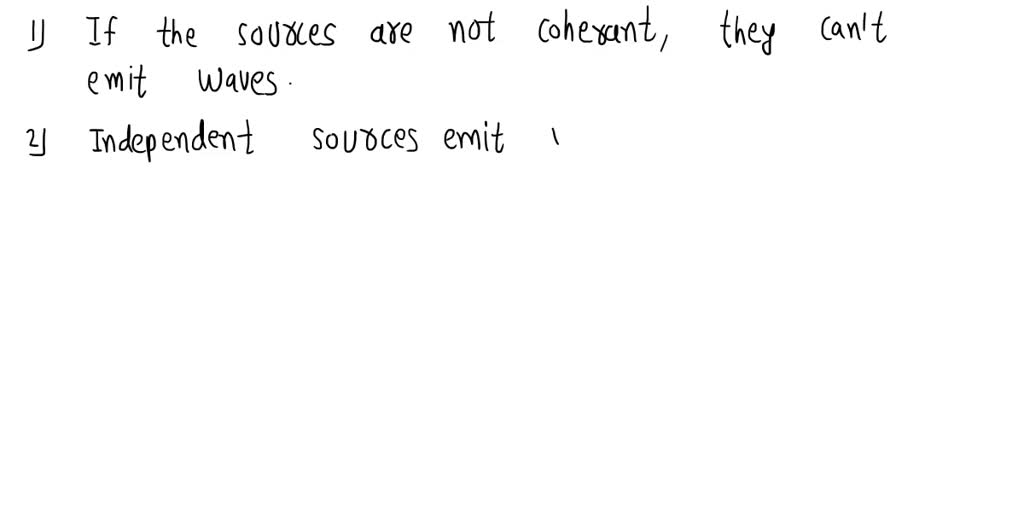 1) If the sources are not coherant, they can't
emit waves.
2) Independent sources emit